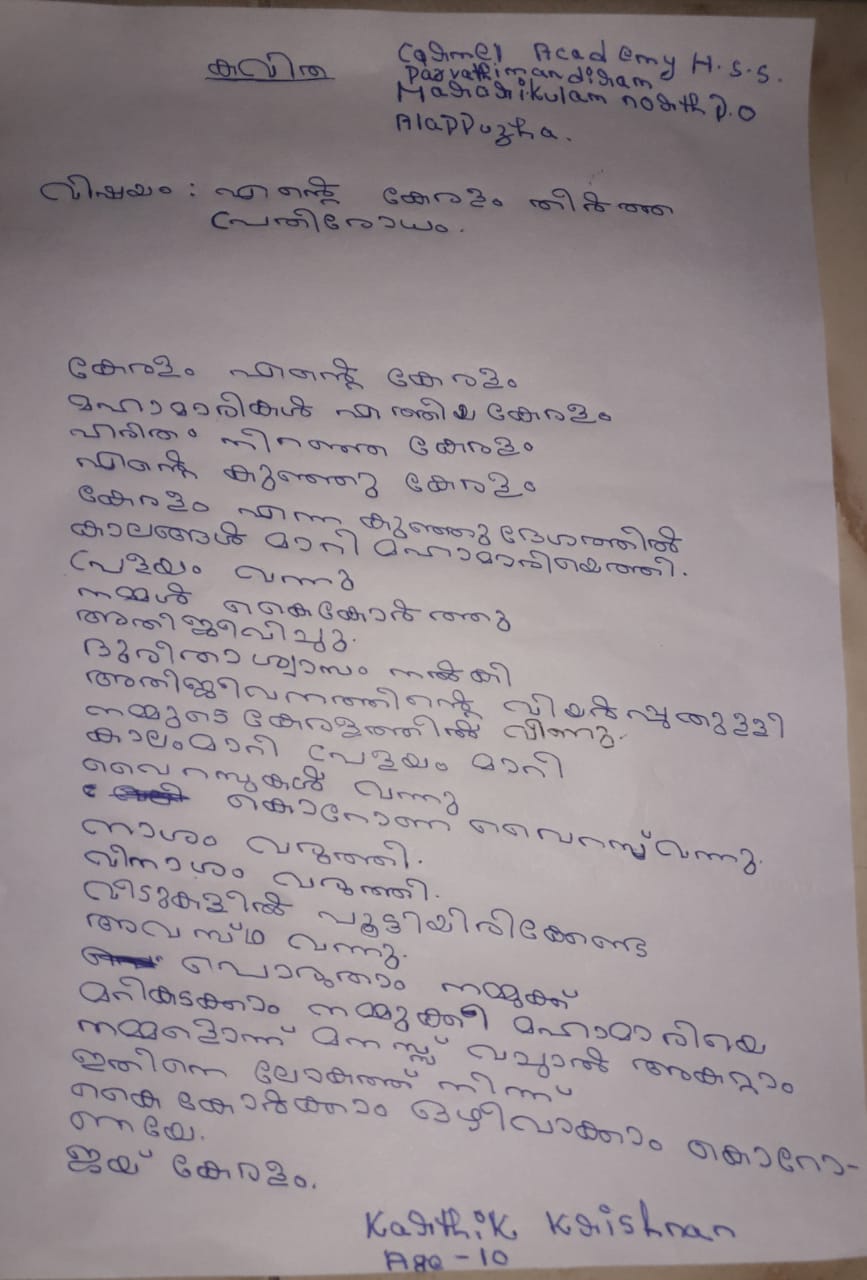 കവിത
Carmel Academy H.S.S.
Parvathimandiram
Mararikulam north P.O
Alappuzha.
വിഷയം : എന്റെ കേരളം തീർത്ത
പ്രതിരോധം.
കേരളം എന്റെ കേരളം
മഹാമാരികൾ എത്തിയ കേരളം
ഹരിതം നിറഞ്ഞ കേരളം
എന്റെ കുഞ്ഞു കേരളം
കേരളം എന്ന കുഞ്ഞുദേശത്തിൽ
കാലങ്ങൾ മാറി മഹാമാരിയെത്തി.
പ്രളയം വന്നു
നമ്മൾ കൈകോർത്തു
അതിജീവിച്ചു.
ദുരിതാശ്വാസം നൽകി
അതിജീവനത്തിന്റെ വിയർപ്പുതുള്ളി
നമ്മുടെ കേരളത്തിൽ വീണു.
കാലംമാറി പ്രളയം മാറി
വൈറസുകൾ വന്നു
കൊറോണ വൈറസ് വന്നു.
നാശം വരുത്തി.
വിനാശം വരുത്തി.
വീടുകളിൽ പൂട്ടിയിരിക്കേണ്ട
അവസ്ഥ വന്നു.
പൊരുതാം നമ്മുക്ക്
മറികടക്കാം നമ്മുക്കീ മഹാമാരിയെ
നമ്മളൊന്ന് മനസ്സ് വച്ചാൽ അകറ്റാം
ഇതിനെ ലോകത്ത് നിന്ന്
കൈ കോർക്കാം ഒഴിവാക്കാം കൊറോ-
ണയേ.
ജയ് കേരളം.
Karthik Krishnan
Age - 10